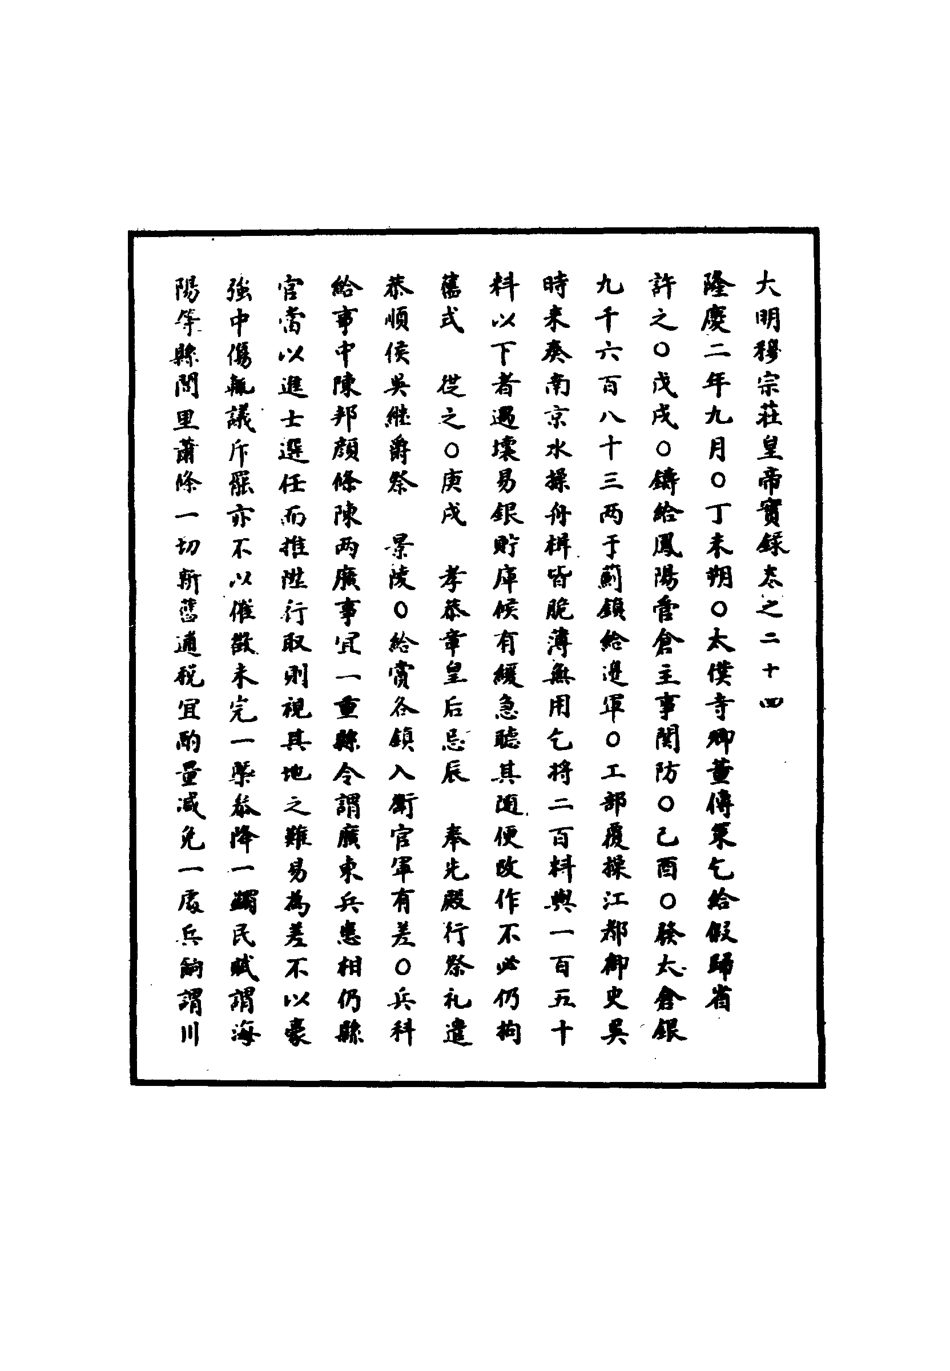 大明穆宗莊皇帝實錄卷之二十四
隆慶二年九月〇丁未朔〇太僕寺卿董傳策乞給假歸省
許之〇戊戌〇鑄給鳳陽管倉主事関防〇己酉〇發太倉銀
九千六百八十三两于薊鎮給邉軍〇工部覆操江都御史吳
時来奏南京水操舟楫皆脆薄無用乞将二百料與一百五十
料以下者遇壞易銀貯庫候有緩急聴其随便改作不必仍拘
舊式　從之〇庚戌　孝恭章皇后忌辰　奉先殿行祭礼遣
恭順侯吳継爵祭　景陵〇給賞各鎮入衛官軍有差〇兵科
給事中陳邦顔條陳两廣事宜一重縣令謂廣東兵患相仍縣
官當以進士選任而推陞行取則視其地之難易為差不以豪
強中傷輒議斥罷亦不以催徵未完一槩叅降一蠲民賦謂海
陽等縣閭里蕭條一切新舊逋税宜酌量减免一處兵餉謂川